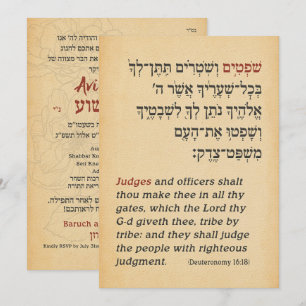 שֹׁפְטִ֣ים וְשֹֽׁטְרִ֗ים תִּֽתֶּן־לְךָ֙
בְּכׇל־שְׁעָרֶ֔יךָ אֲשֶׁ֨ר ה׳
אֱלֹהֶ֛יךָ נֹתֵ֥ן לְךָ֖ לִשְׁבָטֶ֑יךָ
וְשָׁפְט֥וּ אֶת־הָעָ֖ם
מִשְׁפַּט־צֶֽדֶק׃
Judges and officers shalt
thou make thee in all thy
gates, which the Lord thy
G-d giveth thee, tribe by
tribe: and they shall judge
the people with righteous
judgment.
(Deuteronomy 16:18)
בס״ד
והודיה לה׳ אנו
Avi
שוע
נ״י
Shabbat
Baruch a
Kindly RSVP by July